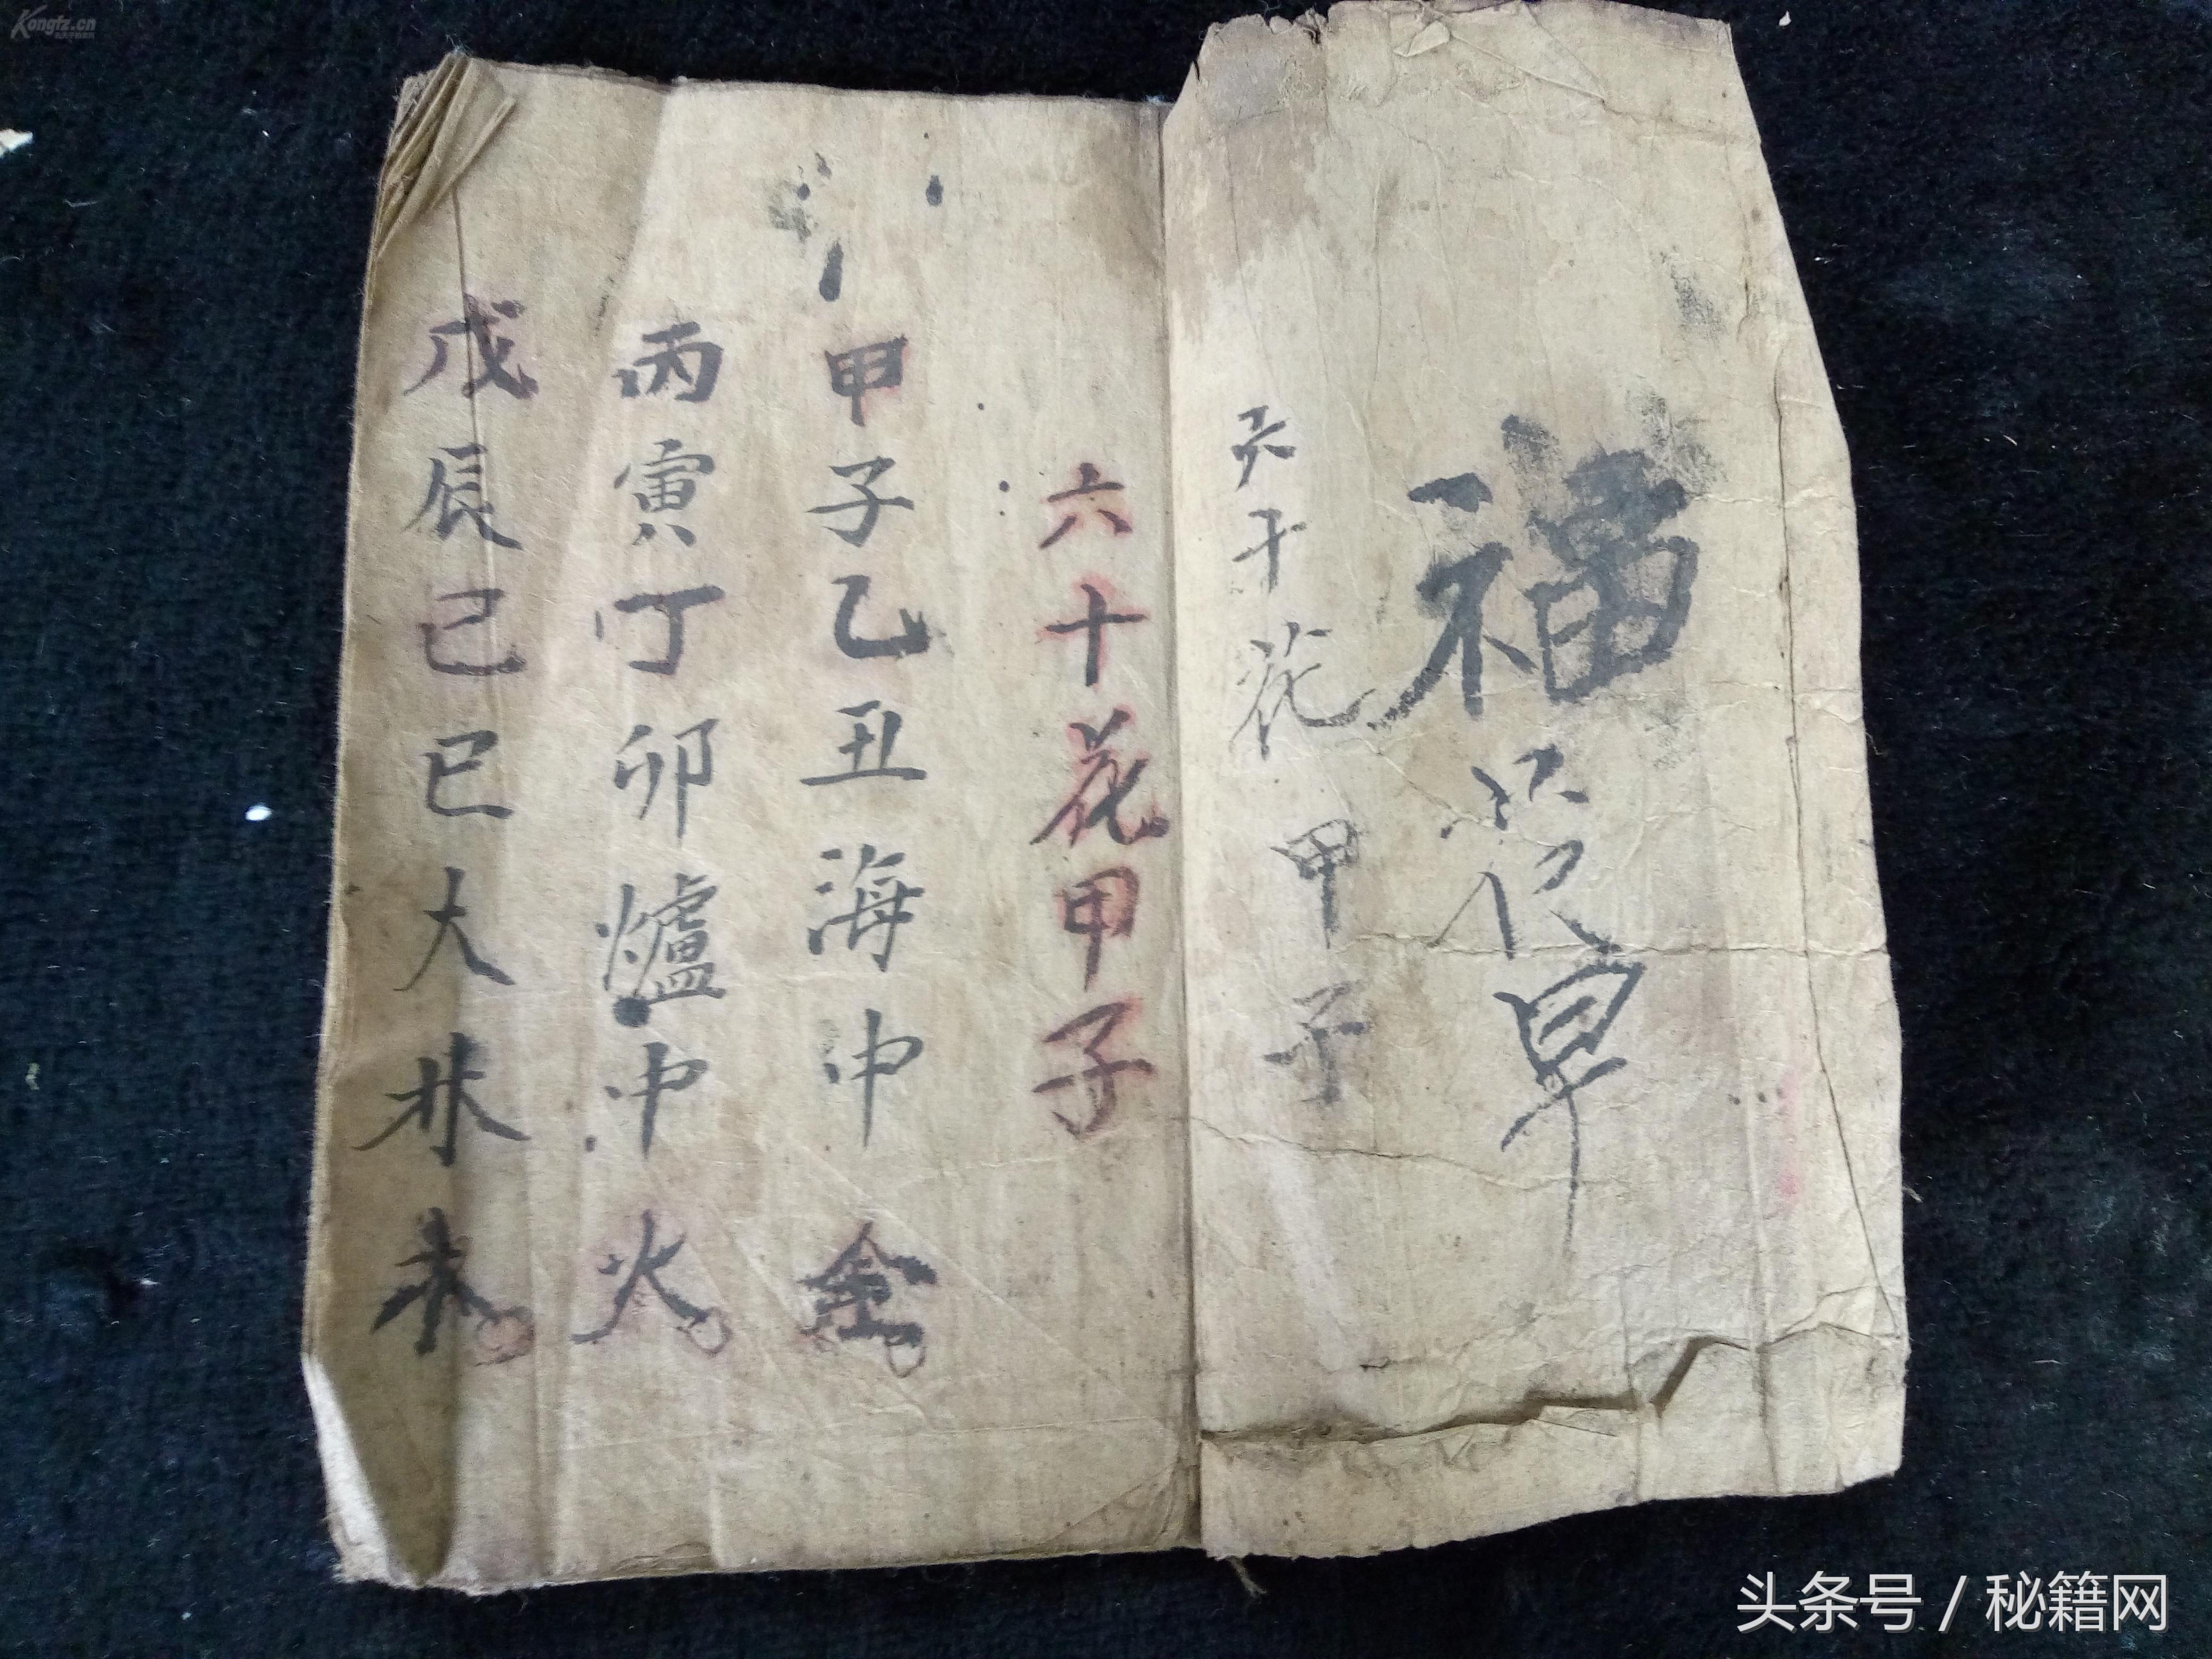 Kongfz.cn
福
六十花甲子
六十花甲子
甲子乙丑海中金
丙寅丁卯爐中火
戊辰己巳大林木
头条号 / 秘籍网